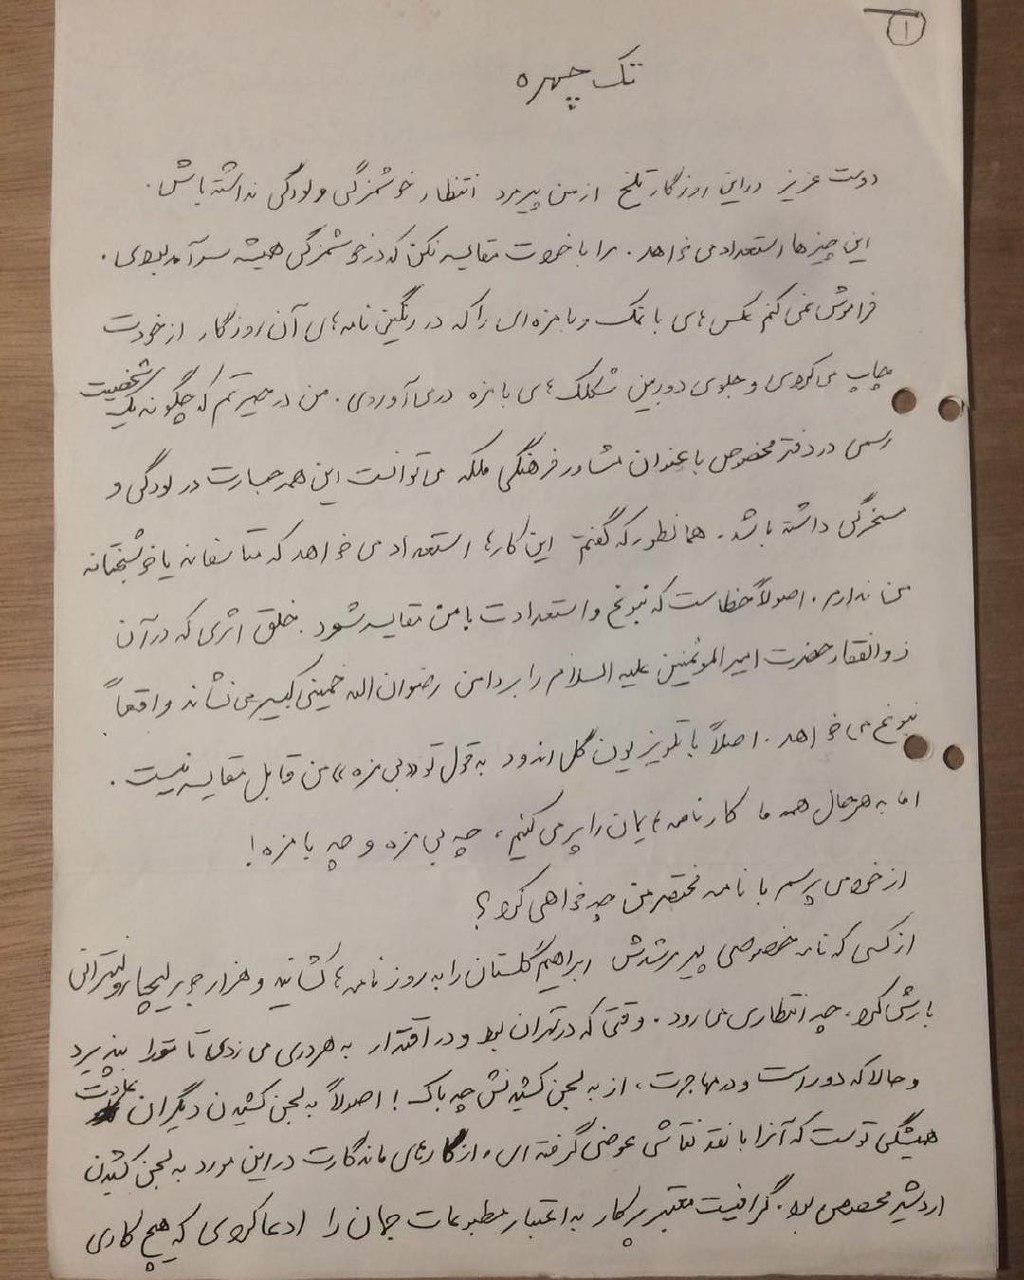 ۱
تک چهره
دوست عزیز در این روزگار تلخ از من پیرمرد انتظار خوشمزگی و لودگی نداشته باش.
این چیزها استعداد می خواهد. مرا با خودت مقایسه نکن که در خوشمزگی همیشه سرآمد بودی.
فراموش نمی کنم عکس های بانمک و بامزه ای را که در رنگین نامه های آن روزگار از خودت
چاپ می کردی و جلوی دوربین شکلک های بامزه در می آوردی. من در حیرتم که چگونه یک شخصیت
رسمی در دفتر مخصوص با عنوان مشاور فرهنگی ملکه می توانست این همه جسارت در لودگی و
مسخرگی داشته باشد. همانطور که گفتم این کارها استعداد می خواهد که متاسفانه یا خوشبختانه
من ندارم. اصولاً خطاست که نبوغ و استعدادت با من مقایسه شود. خلق اثری که در آن
ذوالفقار حضرت امیرالمومنین علیه السلام را بر دامن رضوان اله خمینی کبیر می نشاند واقعاً
نبوغ می خواهد. اصلاً با تلویزیون گل اندود به قول تو «بی مزه» من قابل مقایسه نیست.
اما به هر حال همه ما کارنامه هایمان را پر می کنیم، چه بی مزه و چه بامزه!
از خود می پرسم با نامه مختصر من چه خواهی کرد؟
از کسی که نامه خصوصی پیر مرشدش ابراهیم گلستان را به روزنامه ها کشانید و هزار جور لیچار و لنترانی
بارش کرد. چه انتظاری می رود. وقتی که در تهران بود و در اقتدار به هر دری می زدی تا تورا بپذیرد
و حالا که دور است و در مهاجرت، از به لجن کشیدنش چه باک! اصولاً به لجن کشیدن دیگران عادت
همیشگی توست که آنرا با نقد نقاشی عوضی گرفته ای. از کارهای ماندگارت در این مورد به لجن کشیدن
اردشیر محصص بود. گرافیست معتبر پرکار به اعتبار مطبوعات جهان را ادعا کردی که هیچ کاری